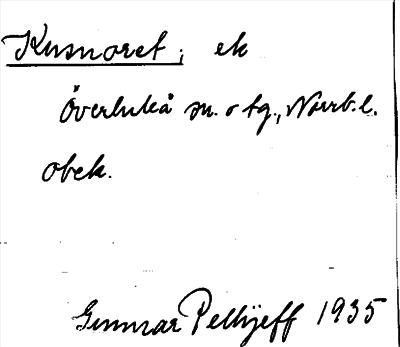 Kusnoret; ek
Överluleå sn. o tg., Norrb. l.
obek.
Gunnar Pellijeff 1935